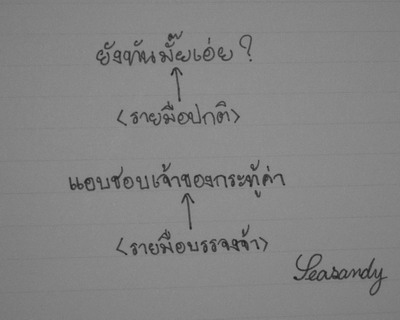 ยังทันมั๊ยเอ่ย ?
<รายมือปกติ>
แอบชอบเจ้าของกระทู้ค่า
<รายมือบรรจงจ้า>
Seasandy